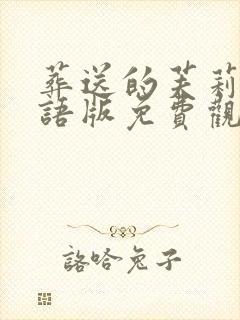 葬送的芙莉
語版免費觀
詻哈兔子